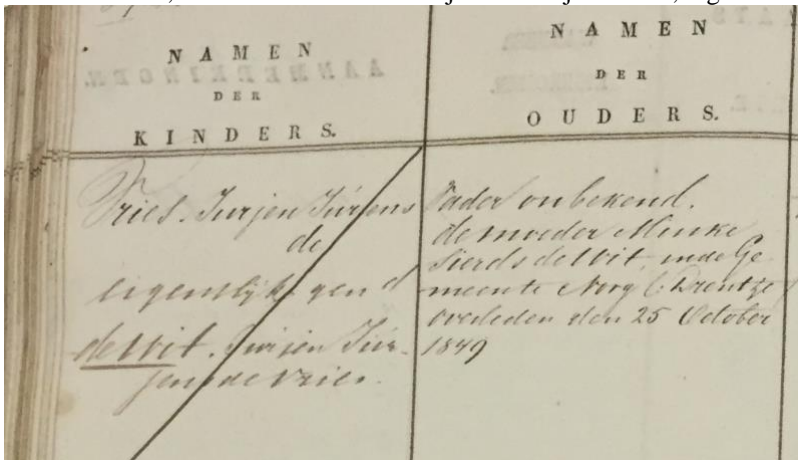 NAMEN
DER
KINDERS.
Vries. Jurjen Jurjens
de
eigentlijk gend
de Wit. Jurjen Jur-
jens de Vries.
NAMEN
DER
OUDERS.
Vader onbekend.
de moeder Minke
Sierds de Wit, in de Ge
meente Norg (Drentze)
overleden den 25 October
1849